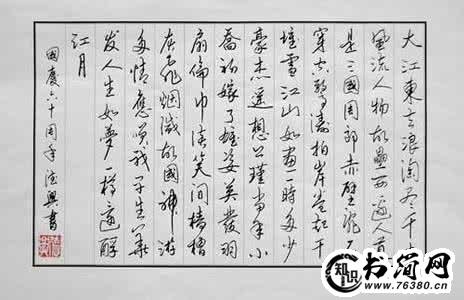 大江東去浪淘尽千古
風流人物故壘西邊人道
是三國周郎赤壁亂石
穿空驚濤拍岸卷起千
堆雪江山如畫一時多少
豪杰遥想公瑾當年小
喬初嫁了雄姿英發羽
扇綸巾淡笑间檣櫓
灰飛烟滅故國神游
多情應笑我早生華
发人生如夢一樽還酹
江月
國慶六十周年德興書
知识
书简网
www.76380.cn